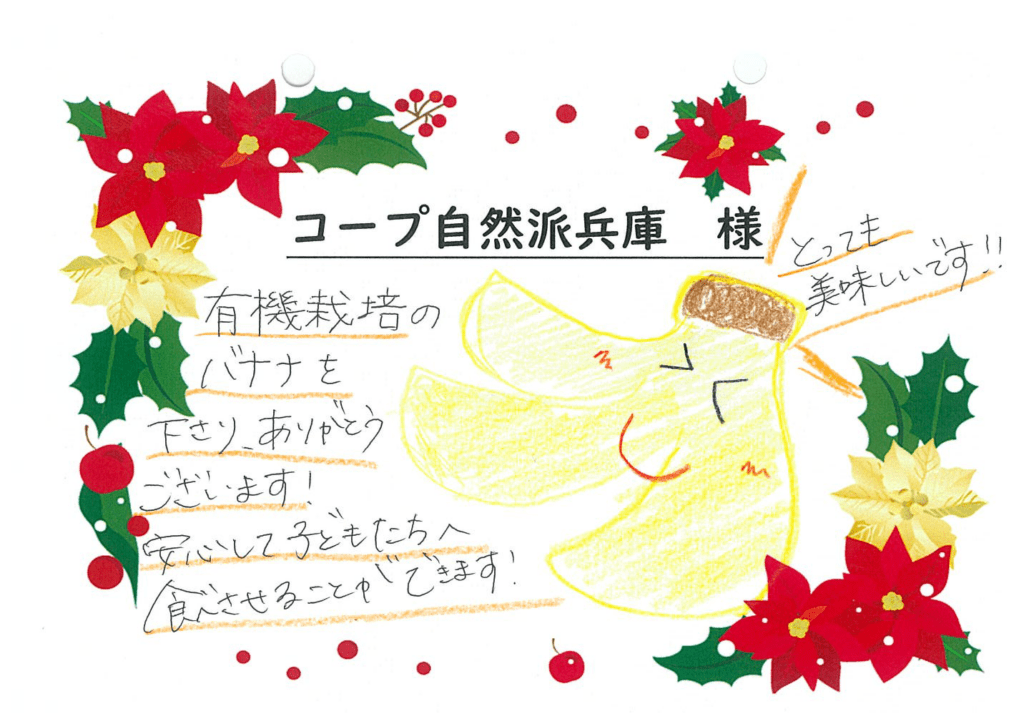 コープ自然派兵庫　様
とっても
美味しいです!!
有機栽培の
バナナを
下さり、ありがとう
ございます!
安心して子どもたちへ
食べさせることができます!